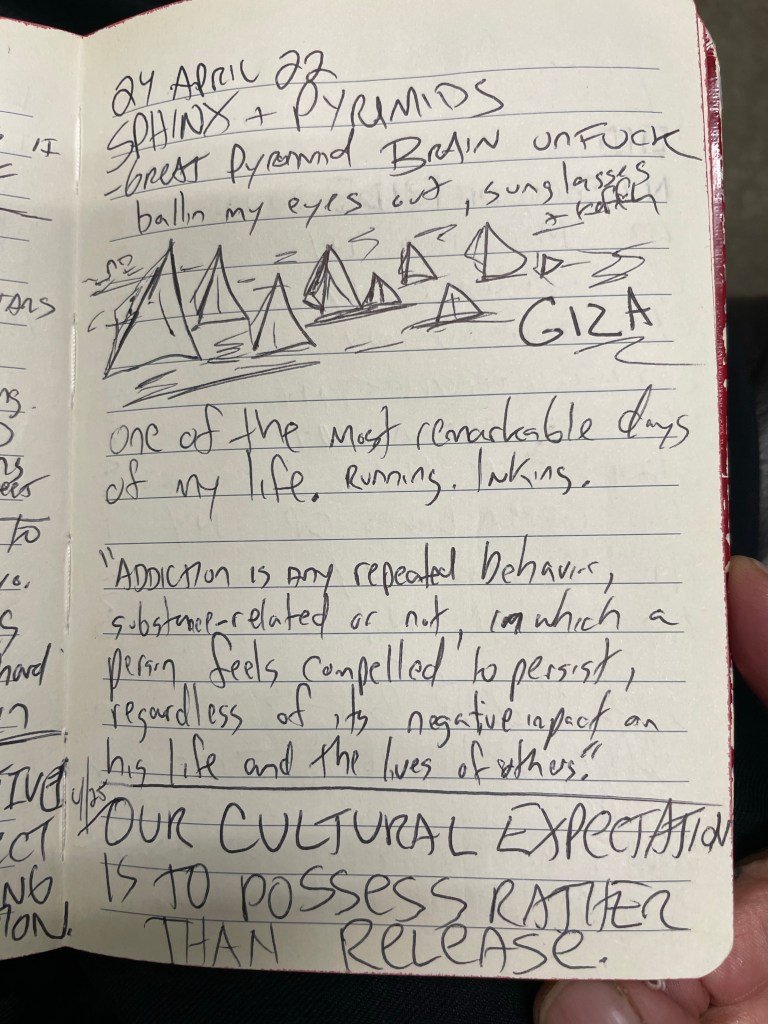 24 APRIL 22
SPHINX + PYRAMIDS
- GREAT Pyramid BRAIN UNFUCK
ballin my eyes out, sunglasses
GIZA
one of the most remarkable days
of my life. Running. Inking.
"ADDICTION IS ANY repeated behavior,
substance-related or not, in which a
person feels compelled to persist,
regardless of its negative impact on
his life and the lives of others."
4/25
OUR CULTURAL EXPECTATION
IS TO POSSESS RATHER
THAN RELEASE.
IT
TANS
ng.
TO
yo.
hard
CT
NG
ION.